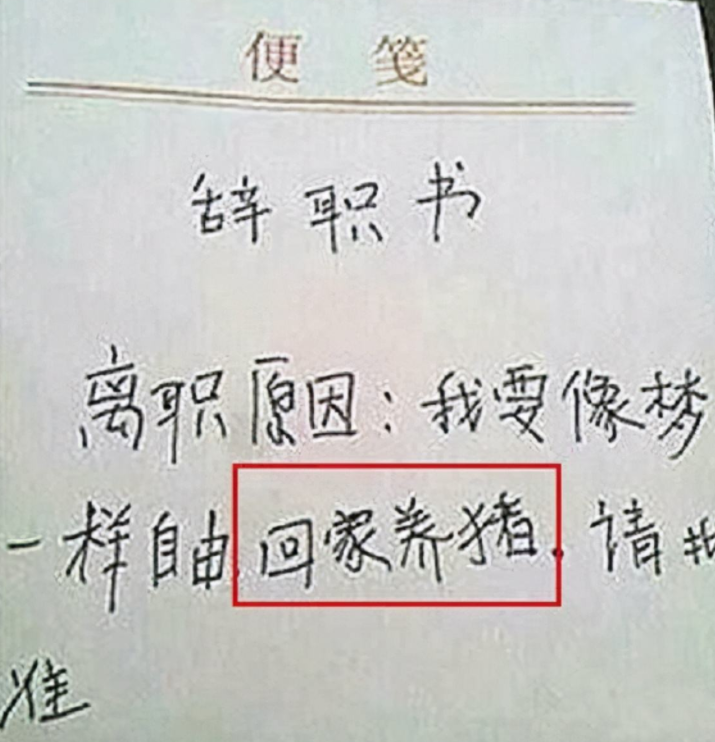 便笺
辞职书
离职原因：我要像梦
一样自由 回家养猪. 请批
准